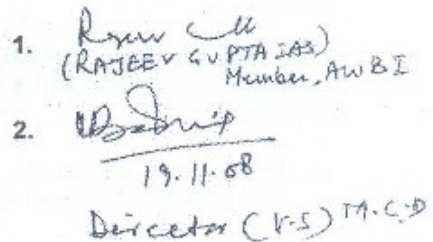 1.
(RAJEEV GUPTA IAS)
Member, AWBI
2.
19.11.08
Director (V.S) M.C.D